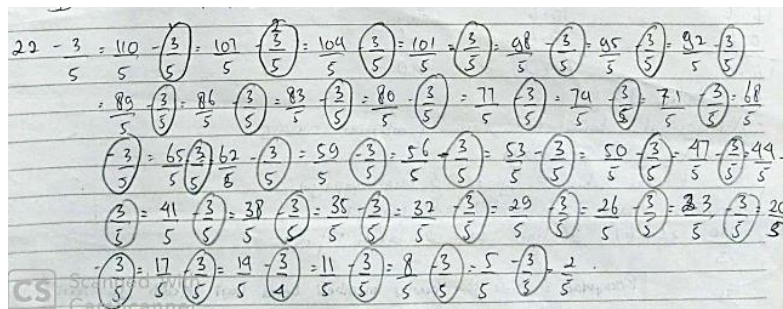 22 - 3/5 = 110/5 - 3/5 = 107/5 - 3/5 = 104/5 - 3/5 = 101/5 - 3/5 = 98/5 - 3/5 = 95/5 - 3/5 = 92/5 - 3/5
= 89/5 - 3/5 = 86/5 - 3/5 = 83/5 - 3/5 = 80/5 - 3/5 = 77/5 - 3/5 = 74/5 - 3/5 = 71/5 - 3/5 = 68/5
- 3/5 = 65/5 - 3/5 62/5 - 3/5 = 59/5 - 3/5 = 56/5 - 3/5 = 53/5 - 3/5 = 50/5 - 3/5 = 47/5 - 3/5 = 44/5
3/5 = 41/5 - 3/5 = 38/5 - 3/5 = 35/5 - 3/5 = 32/5 - 3/5 = 29/5 - 3/5 = 26/5 - 3/5 = 23/5 - 3/5 = 20/5
- 3/5 = 17/5 - 3/5 = 14/5 - 3/4 = 11/5 - 3/5 = 8/5 - 3/5 = 5/5 - 3/5 = 2/5.
CS Scanned with
CamScanner